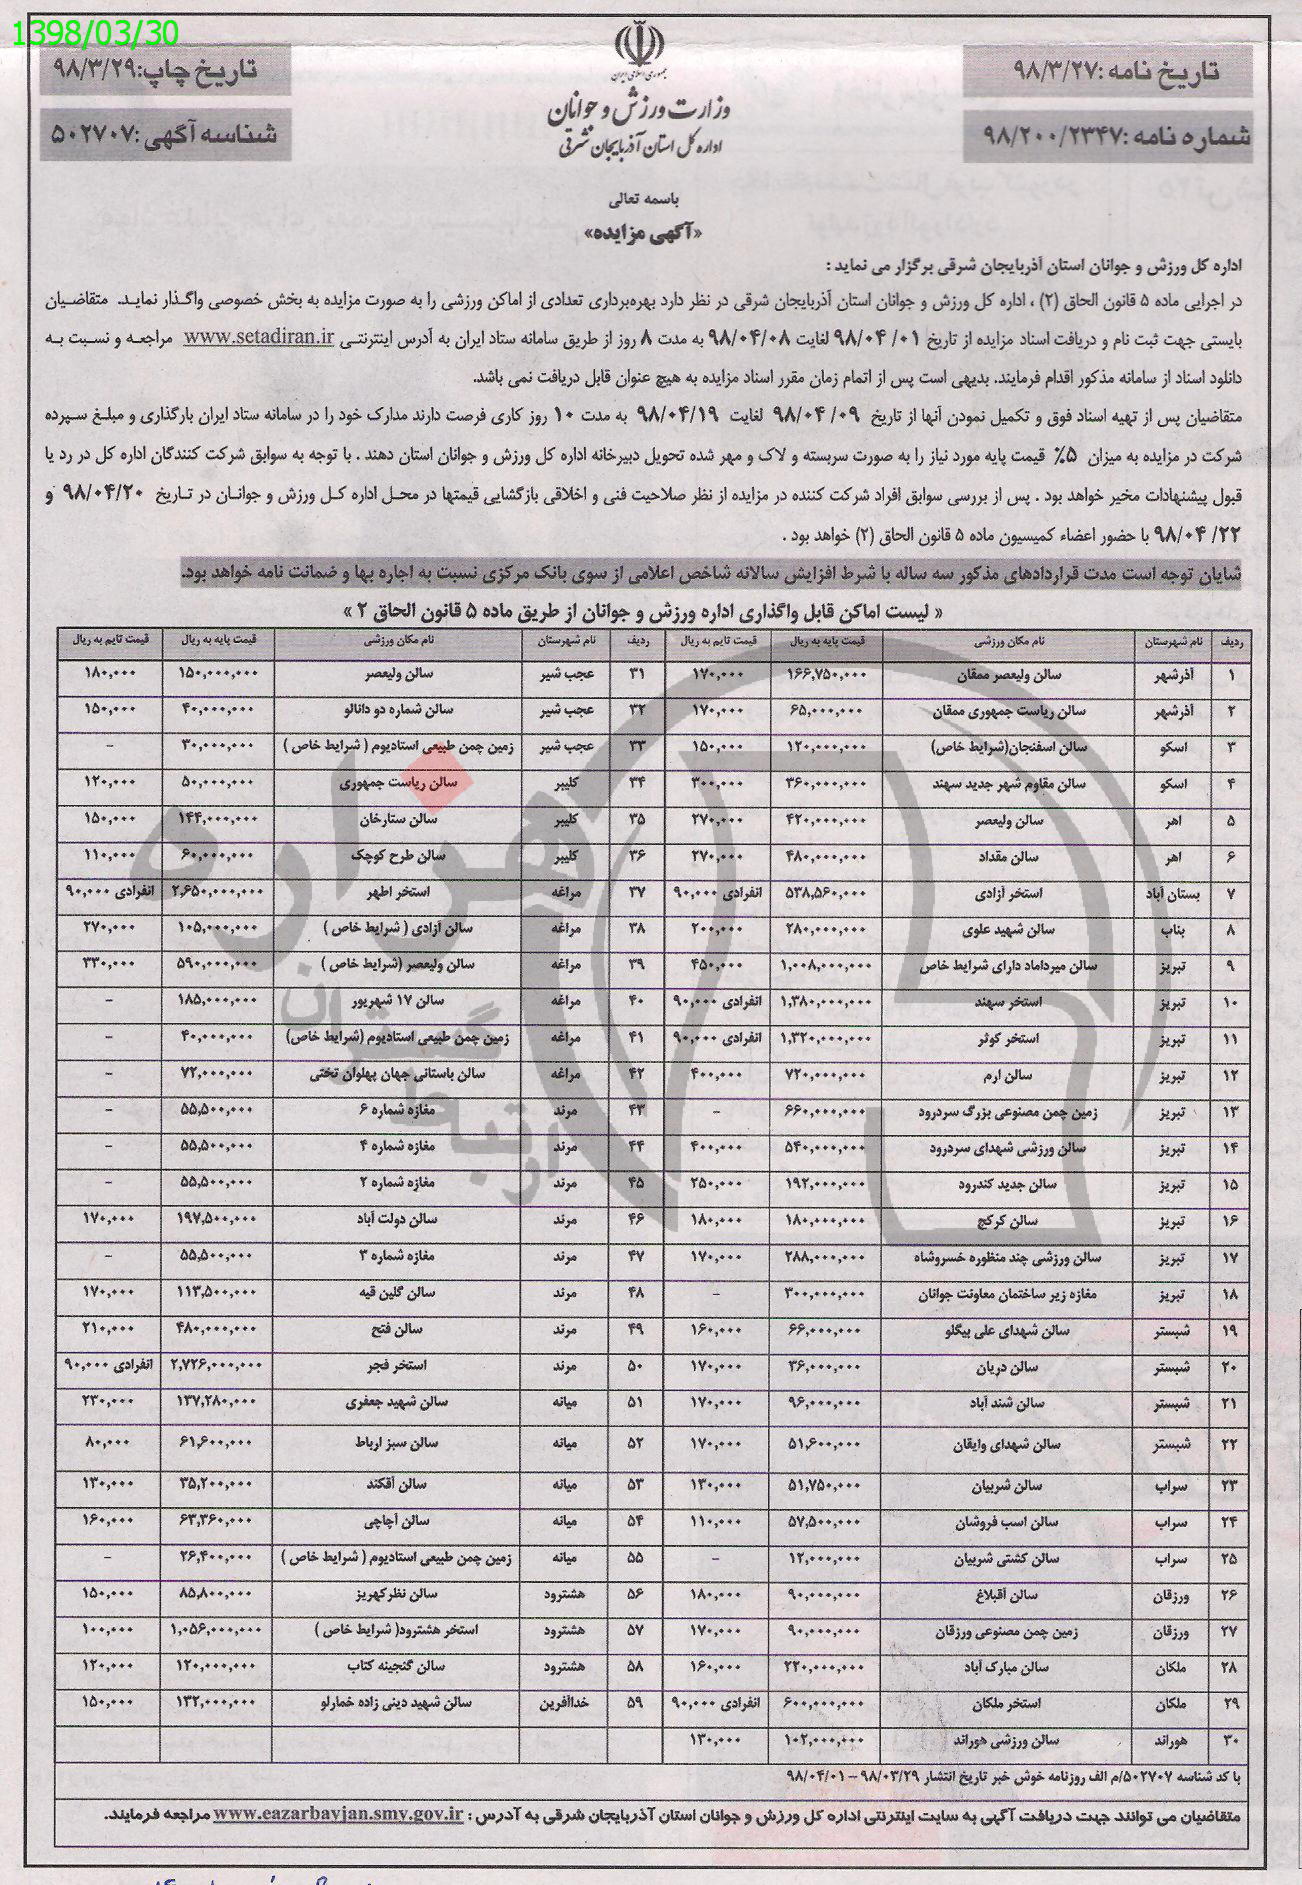 1398/03/30
تاریخ نامه :۹۸/۳/۲۷
شماره نامه :۹۸/۲۰۰/۲۳۴۷
جمهوری اسلامی ایران
وزارت ورزش و جوانان
اداره کل استان آذربایجان شرقی
تاریخ چاپ:۹۸/۳/۲۹
شناسه آگهی :۵۰۲۷۰۷
باسمه تعالی
«آگهی مزایده»
اداره کل ورزش و جوانان استان آذربایجان شرقی برگزار می نماید :
در اجرایی ماده ۵ قانون الحاق (۲) ، اداره کل ورزش و جوانان استان آذربایجان شرقی در نظر دارد بهره‌برداری تعدادی از اماکن ورزشی را به صورت مزایده به بخش خصوصی واگذار نماید. متقاضیان
بایستی جهت ثبت نام و دریافت اسناد مزایده از تاریخ ۹۸/۰۴/۰۱ لغایت ۹۸/۰۴/۰۸ به مدت ۸ روز از طریق سامانه ستاد ایران به آدرس اینترنتی www.setadiran.ir مراجعه و نسبت به
دانلود اسناد از سامانه مذکور اقدام فرمایند. بدیهی است پس از اتمام زمان مقرر اسناد مزایده به هیچ عنوان قابل دریافت نمی باشد.
متقاضیان پس از تهیه اسناد فوق و تکمیل نمودن آنها از تاریخ ۹۸/۰۴/۰۹ لغایت ۹۸/۰۴/۱۹ به مدت ۱۰ روز کاری فرصت دارند مدارک خود را در سامانه ستاد ایران بارگذاری و مبلغ سپرده
شرکت در مزایده به میزان ۵% قیمت پایه مورد نیاز را به صورت سربسته و لاک و مهر شده تحویل دبیرخانه اداره کل ورزش و جوانان استان دهند . با توجه به سوابق شرکت کنندگان اداره کل در رد یا
قبول پیشنهادات مخیر خواهد بود . پس از بررسی سوابق افراد شرکت کننده در مزایده از نظر صلاحیت فنی و اخلاقی بازگشایی قیمتها در محل اداره کل ورزش و جوانان در تاریخ ۹۸/۰۴/۲۰ و
۹۸/۰۴/۲۲ با حضور اعضاء کمیسیون ماده ۵ قانون الحاق (۲) خواهد بود .
شایان توجه است مدت قراردادهای مذکور سه ساله با شرط افزایش سالانه شاخص اعلامی از سوی بانک مرکزی نسبت به اجاره بها و ضمانت نامه خواهد بود.
« لیست اماکن قابل واگذاری اداره ورزش و جوانان از طریق ماده ۵ قانون الحاق ۲ »
ردیف نام شهرستان نام مکان ورزشی قیمت پایه به ریال قیمت تایم به ریال ردیف نام شهرستان نام مکان ورزشی قیمت پایه به ریال قیمت تایم به ریال
۱ آذرشهر سالن ولیعصر ممقان ۱۶۶,۷۵۰,۰۰۰ ۱۷۰,۰۰۰ ۳۱ عجب شیر سالن ولیعصر ۱۵۰,۰۰۰,۰۰۰ ۱۸۰,۰۰۰
۲ آذرشهر سالن ریاست جمهوری ممقان ۶۵,۰۰۰,۰۰۰ ۱۷۰,۰۰۰ ۳۲ عجب شیر سالن شماره دو دانالو ۴۰,۰۰۰,۰۰۰ ۱۵۰,۰۰۰
۳ اسکو سالن اسفنجان(شرایط خاص) ۱۲۰,۰۰۰,۰۰۰ ۱۵۰,۰۰۰ ۳۳ عجب شیر زمین چمن طبیعی استادیوم ( شرایط خاص ) ۳۰,۰۰۰,۰۰۰ -
۴ اسکو سالن مقاوم شهر جدید سهند ۳۶۰,۰۰۰,۰۰۰ ۳۰۰,۰۰۰ ۳۴ کلیبر سالن ریاست جمهوری ۵۰,۰۰۰,۰۰۰ ۱۲۰,۰۰۰
۵ اهر سالن ولیعصر ۴۲۰,۰۰۰,۰۰۰ ۲۷۰,۰۰۰ ۳۵ کلیبر سالن ستارخان ۱۴۴,۰۰۰,۰۰۰ ۱۵۰,۰۰۰
۶ اهر سالن مقداد ۴۸۰,۰۰۰,۰۰۰ ۲۷۰,۰۰۰ ۳۶ کلیبر سالن طرح کوچک ۶۰,۰۰۰,۰۰۰ ۱۱۰,۰۰۰
۷ بستان آباد استخر آزادی ۵۳۸,۵۶۰,۰۰۰ انفرادی ۹۰,۰۰۰ ۳۷ مراغه استخر اطهر ۲,۶۵۰,۰۰۰,۰۰۰ انفرادی ۹۰,۰۰۰
۸ بناب سالن شهید علوی ۲۸۰,۰۰۰,۰۰۰ ۲۰۰,۰۰۰ ۳۸ مراغه سالن آزادی ( شرایط خاص ) ۱۰۵,۰۰۰,۰۰۰ ۲۷۰,۰۰۰
۹ تبریز سالن میرداماد دارای شرایط خاص ۱,۰۰۸,۰۰۰,۰۰۰ ۴۵۰,۰۰۰ ۳۹ مراغه سالن ولیعصر (شرایط خاص ) ۵۹۰,۰۰۰,۰۰۰ ۳۳۰,۰۰۰
۱۰ تبریز استخر سهند ۱,۳۸۰,۰۰۰,۰۰۰ انفرادی ۹۰,۰۰۰ ۴۰ مراغه سالن ۱۷ شهریور ۱۸۵,۰۰۰,۰۰۰ -
۱۱ تبریز استخر کوثر ۱,۳۲۰,۰۰۰,۰۰۰ انفرادی ۹۰,۰۰۰ ۴۱ مراغه زمین چمن طبیعی استادیوم (شرایط خاص) ۴۰,۰۰۰,۰۰۰ -
۱۲ تبریز سالن ارم ۷۲۰,۰۰۰,۰۰۰ ۴۰۰,۰۰۰ ۴۲ مراغه سالن باستانی جهان پهلوان تختی ۷۲,۰۰۰,۰۰۰ -
۱۳ تبریز زمین چمن مصنوعی بزرگ سردرود ۶۶۰,۰۰۰,۰۰۰ - ۴۳ مرند مغازه شماره ۶ ۵۵,۵۰۰,۰۰۰ -
۱۴ تبریز سالن ورزشی شهدای سردرود ۵۴۰,۰۰۰,۰۰۰ ۴۰۰,۰۰۰ ۴۴ مرند مغازه شماره ۴ ۵۵,۵۰۰,۰۰۰ -
۱۵ تبریز سالن جدید کندرود ۱۹۲,۰۰۰,۰۰۰ ۲۵۰,۰۰۰ ۴۵ مرند مغازه شماره ۲ ۵۵,۵۰۰,۰۰۰ -
۱۶ تبریز سالن کرکج ۱۸۰,۰۰۰,۰۰۰ ۱۸۰,۰۰۰ ۴۶ مرند سالن دولت آباد ۱۹۷,۵۰۰,۰۰۰ ۱۷۰,۰۰۰
۱۷ تبریز سالن ورزشی چند منظوره خسروشاه ۲۸۸,۰۰۰,۰۰۰ ۱۷۰,۰۰۰ ۴۷ مرند مغازه شماره ۳ ۵۵,۵۰۰,۰۰۰ -
۱۸ تبریز مغازه زیر ساختمان معاونت جوانان ۳۰۰,۰۰۰,۰۰۰ - ۴۸ مرند سالن گلین قیه ۱۱۳,۵۰۰,۰۰۰ ۱۷۰,۰۰۰
۱۹ شبستر سالن شهدای علی بیگلو ۶۶,۰۰۰,۰۰۰ ۱۶۰,۰۰۰ ۴۹ مرند سالن فتح ۴۸۰,۰۰۰,۰۰۰ ۲۱۰,۰۰۰
۲۰ شبستر سالن دریان ۳۶,۰۰۰,۰۰۰ ۱۷۰,۰۰۰ ۵۰ مرند استخر فجر ۲,۷۲۶,۰۰۰,۰۰۰ انفرادی ۹۰,۰۰۰
۲۱ شبستر سالن شند آباد ۹۶,۰۰۰,۰۰۰ ۱۷۰,۰۰۰ ۵۱ میانه سالن شهید جعفری ۱۳۷,۲۸۰,۰۰۰ ۲۳۰,۰۰۰
۲۲ شبستر سالن شهدای وایقان ۵۱,۶۰۰,۰۰۰ ۱۷۰,۰۰۰ ۵۲ میانه سالن سبز ارباط ۶۱,۶۰۰,۰۰۰ ۸۰,۰۰۰
۲۳ سراب سالن شربیان ۵۱,۷۵۰,۰۰۰ ۱۳۰,۰۰۰ ۵۳ میانه سالن آقکند ۳۵,۲۰۰,۰۰۰ ۱۳۰,۰۰۰
۲۴ سراب سالن اسب فروشان ۵۷,۵۰۰,۰۰۰ ۱۱۰,۰۰۰ ۵۴ میانه سالن آچاچی ۶۳,۳۶۰,۰۰۰ ۱۶۰,۰۰۰
۲۵ سراب سالن کشتی شربیان ۱۲,۰۰۰,۰۰۰ - ۵۵ میانه زمین چمن طبیعی استادیوم ( شرایط خاص ) ۲۶,۴۰۰,۰۰۰ -
۲۶ ورزقان سالن آقبلاغ ۹۰,۰۰۰,۰۰۰ ۱۸۰,۰۰۰ ۵۶ هشترود سالن نظرکهریز ۸۵,۸۰۰,۰۰۰ ۱۵۰,۰۰۰
۲۷ ورزقان زمین چمن مصنوعی ورزقان ۹۰,۰۰۰,۰۰۰ ۱۷۰,۰۰۰ ۵۷ هشترود استخر هشترود( شرایط خاص ) ۱,۰۵۶,۰۰۰,۰۰۰ ۱۰۰,۰۰۰
۲۸ ملکان سالن مبارک آباد ۲۲۰,۰۰۰,۰۰۰ ۱۶۰,۰۰۰ ۵۸ هشترود سالن گنجینه کتاب ۱۲۰,۰۰۰,۰۰۰ ۱۲۰,۰۰۰
۲۹ ملکان استخر ملکان ۶۰۰,۰۰۰,۰۰۰ انفرادی ۹۰,۰۰۰ ۵۹ خداآفرین سالن شهید دینی زاده خمارلو ۱۳۲,۰۰۰,۰۰۰ ۱۵۰,۰۰۰
۳۰ هوراند سالن ورزشی هوراند ۱۰۲,۰۰۰,۰۰۰ ۱۳۰,۰۰۰
با کد شناسه ۵۰۲۷۰۷/م الف روزنامه خوش خبر تاریخ انتشار ۹۸/۰۳/۲۹ – ۹۸/۰۴/۰۱
متقاضیان می توانند جهت دریافت آگهی به سایت اینترنتی اداره کل ورزش و جوانان استان آذربایجان شرقی به آدرس : www.eazarbayjan.smy.gov.ir مراجعه فرمایند.